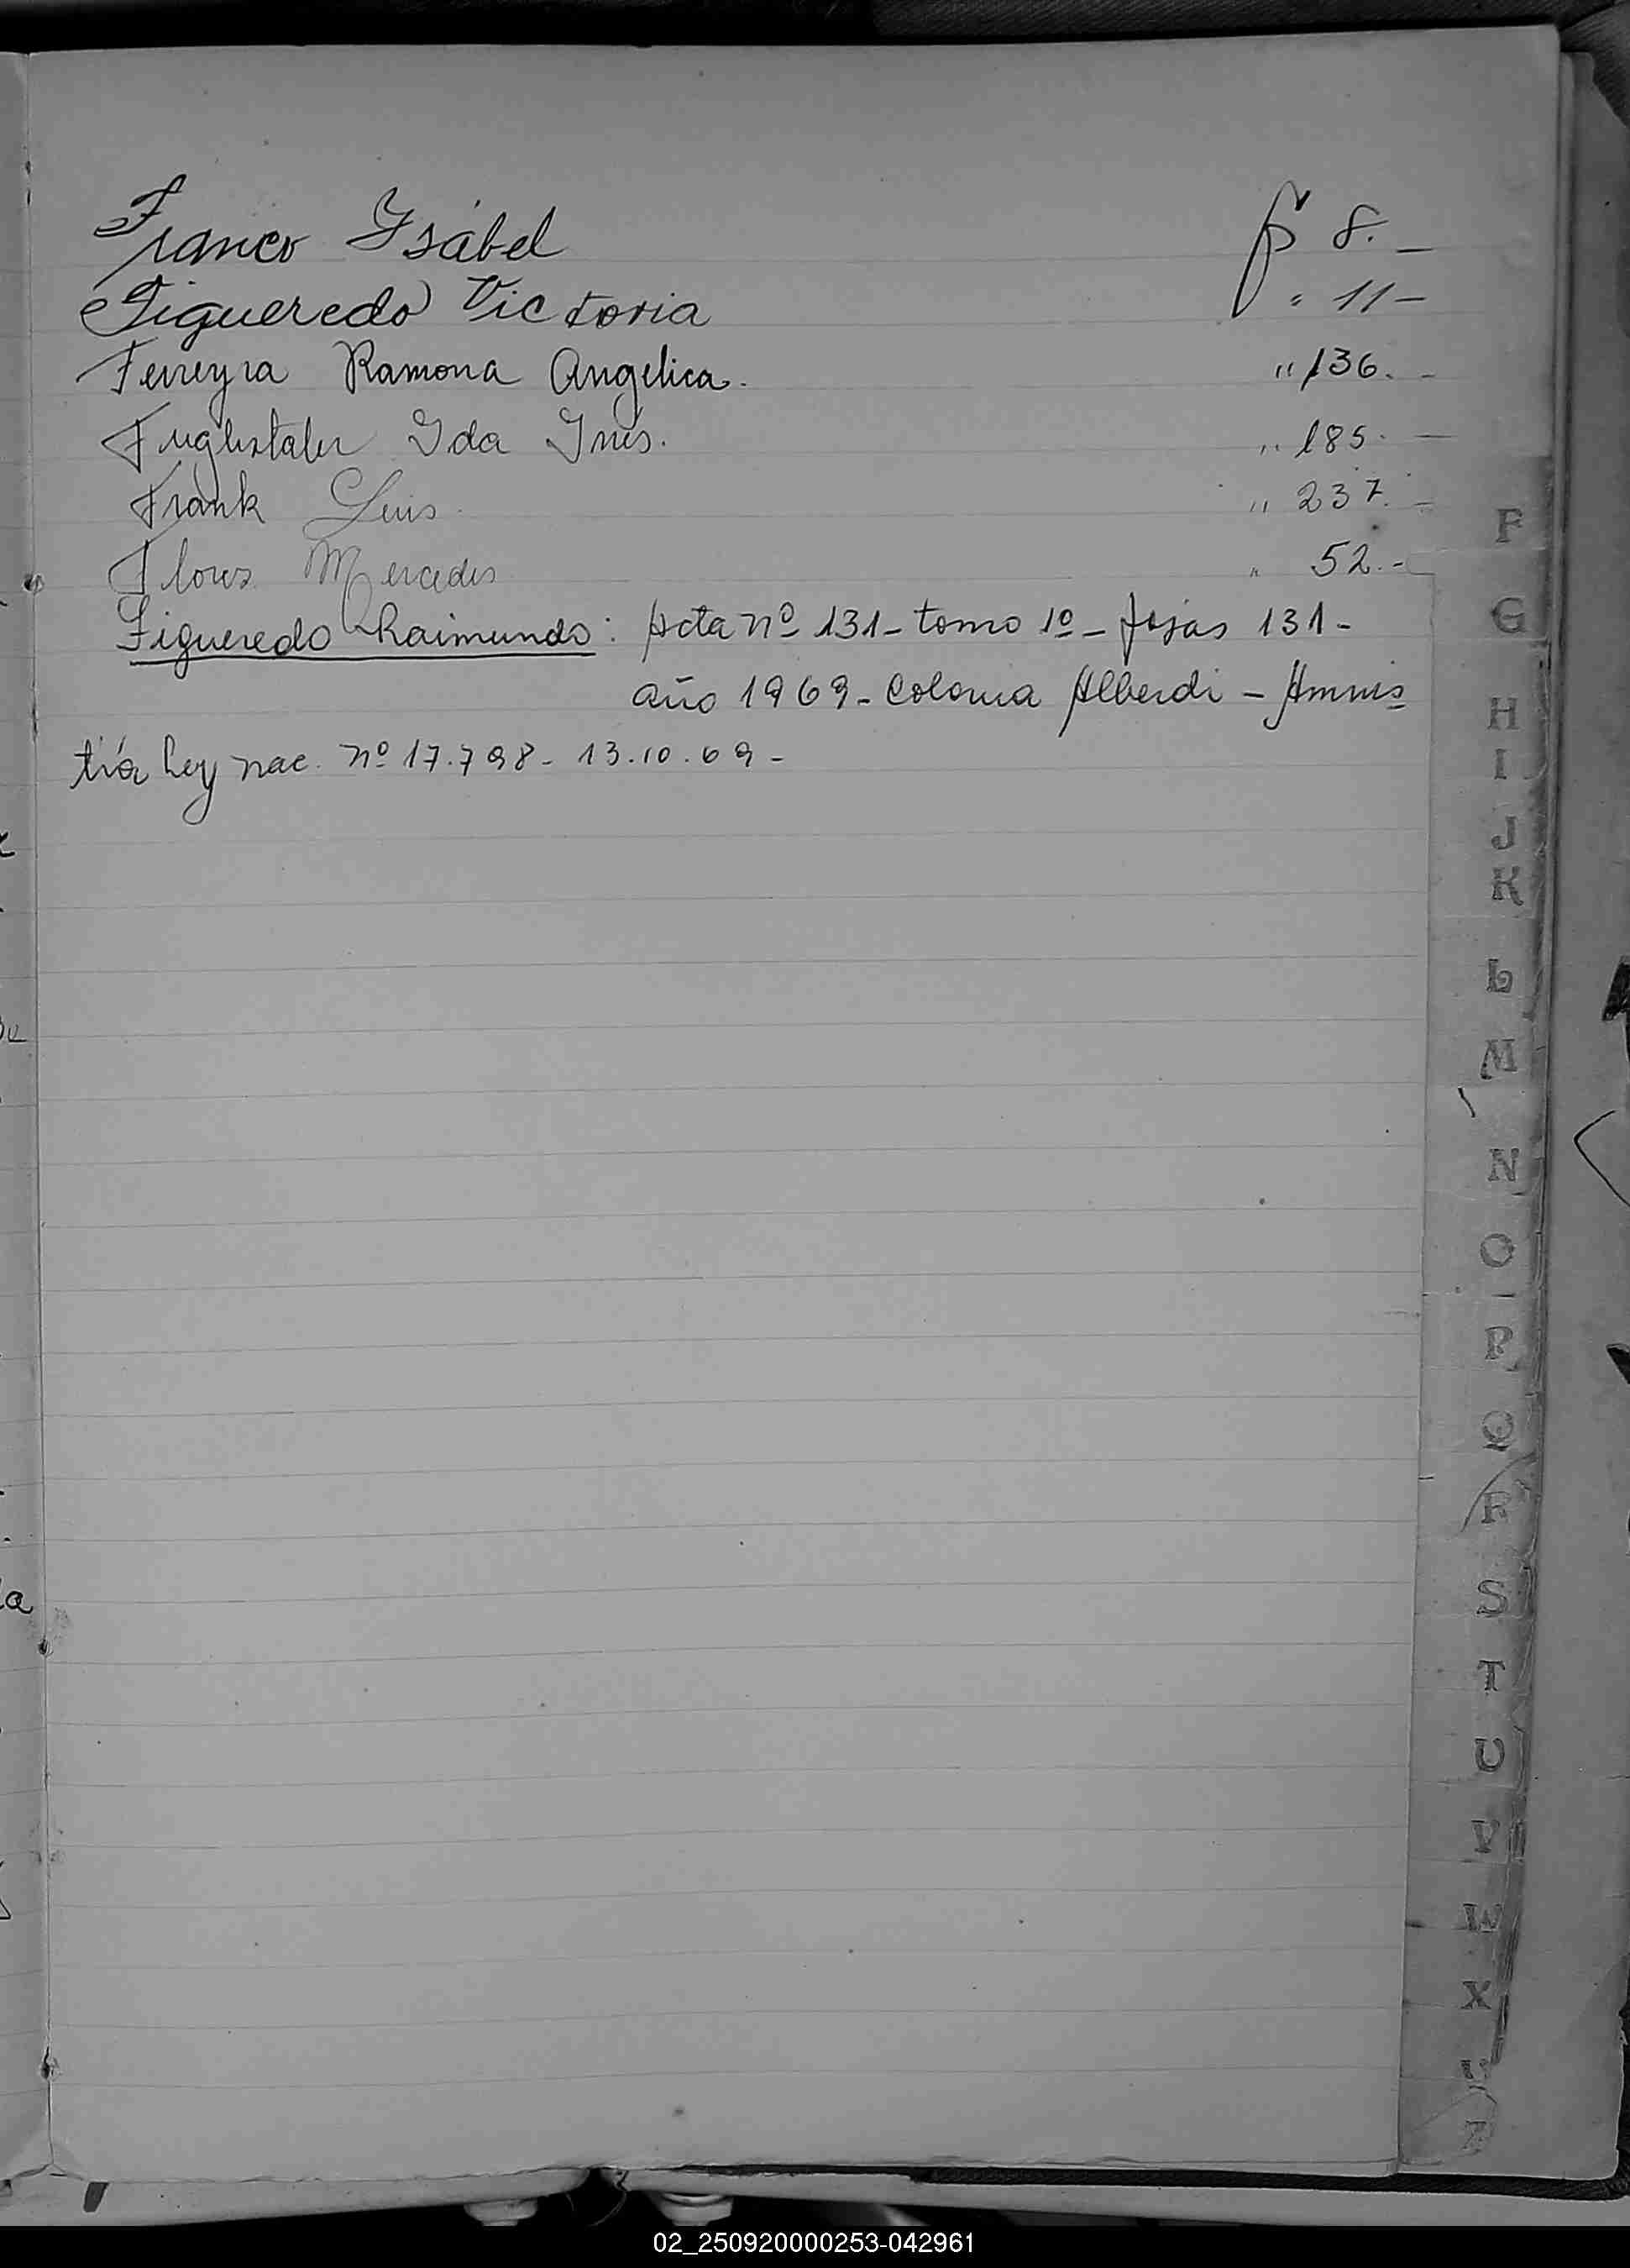 Franco Ysabel fs 8. -
Figueredo Victoria " 11 -
Ferreyra Ramona Angelica. " 136. -
Fuglistaler Ida Inés. " 185. -
Frank Luis " 237. -
Flores Mercedes " 52. -
Figueredo Raimundo: Acta nº 131 - tomo 1º - fojas 131 -
año 1969 - Colonia Alberdi - Amnis
tía Ley nac. nº 17.798 - 13.10.69 -
F
G
H
I
J
K
L
M
N
O
P
Q
R
S
T
U
V
W
X
02_250920000253-042961